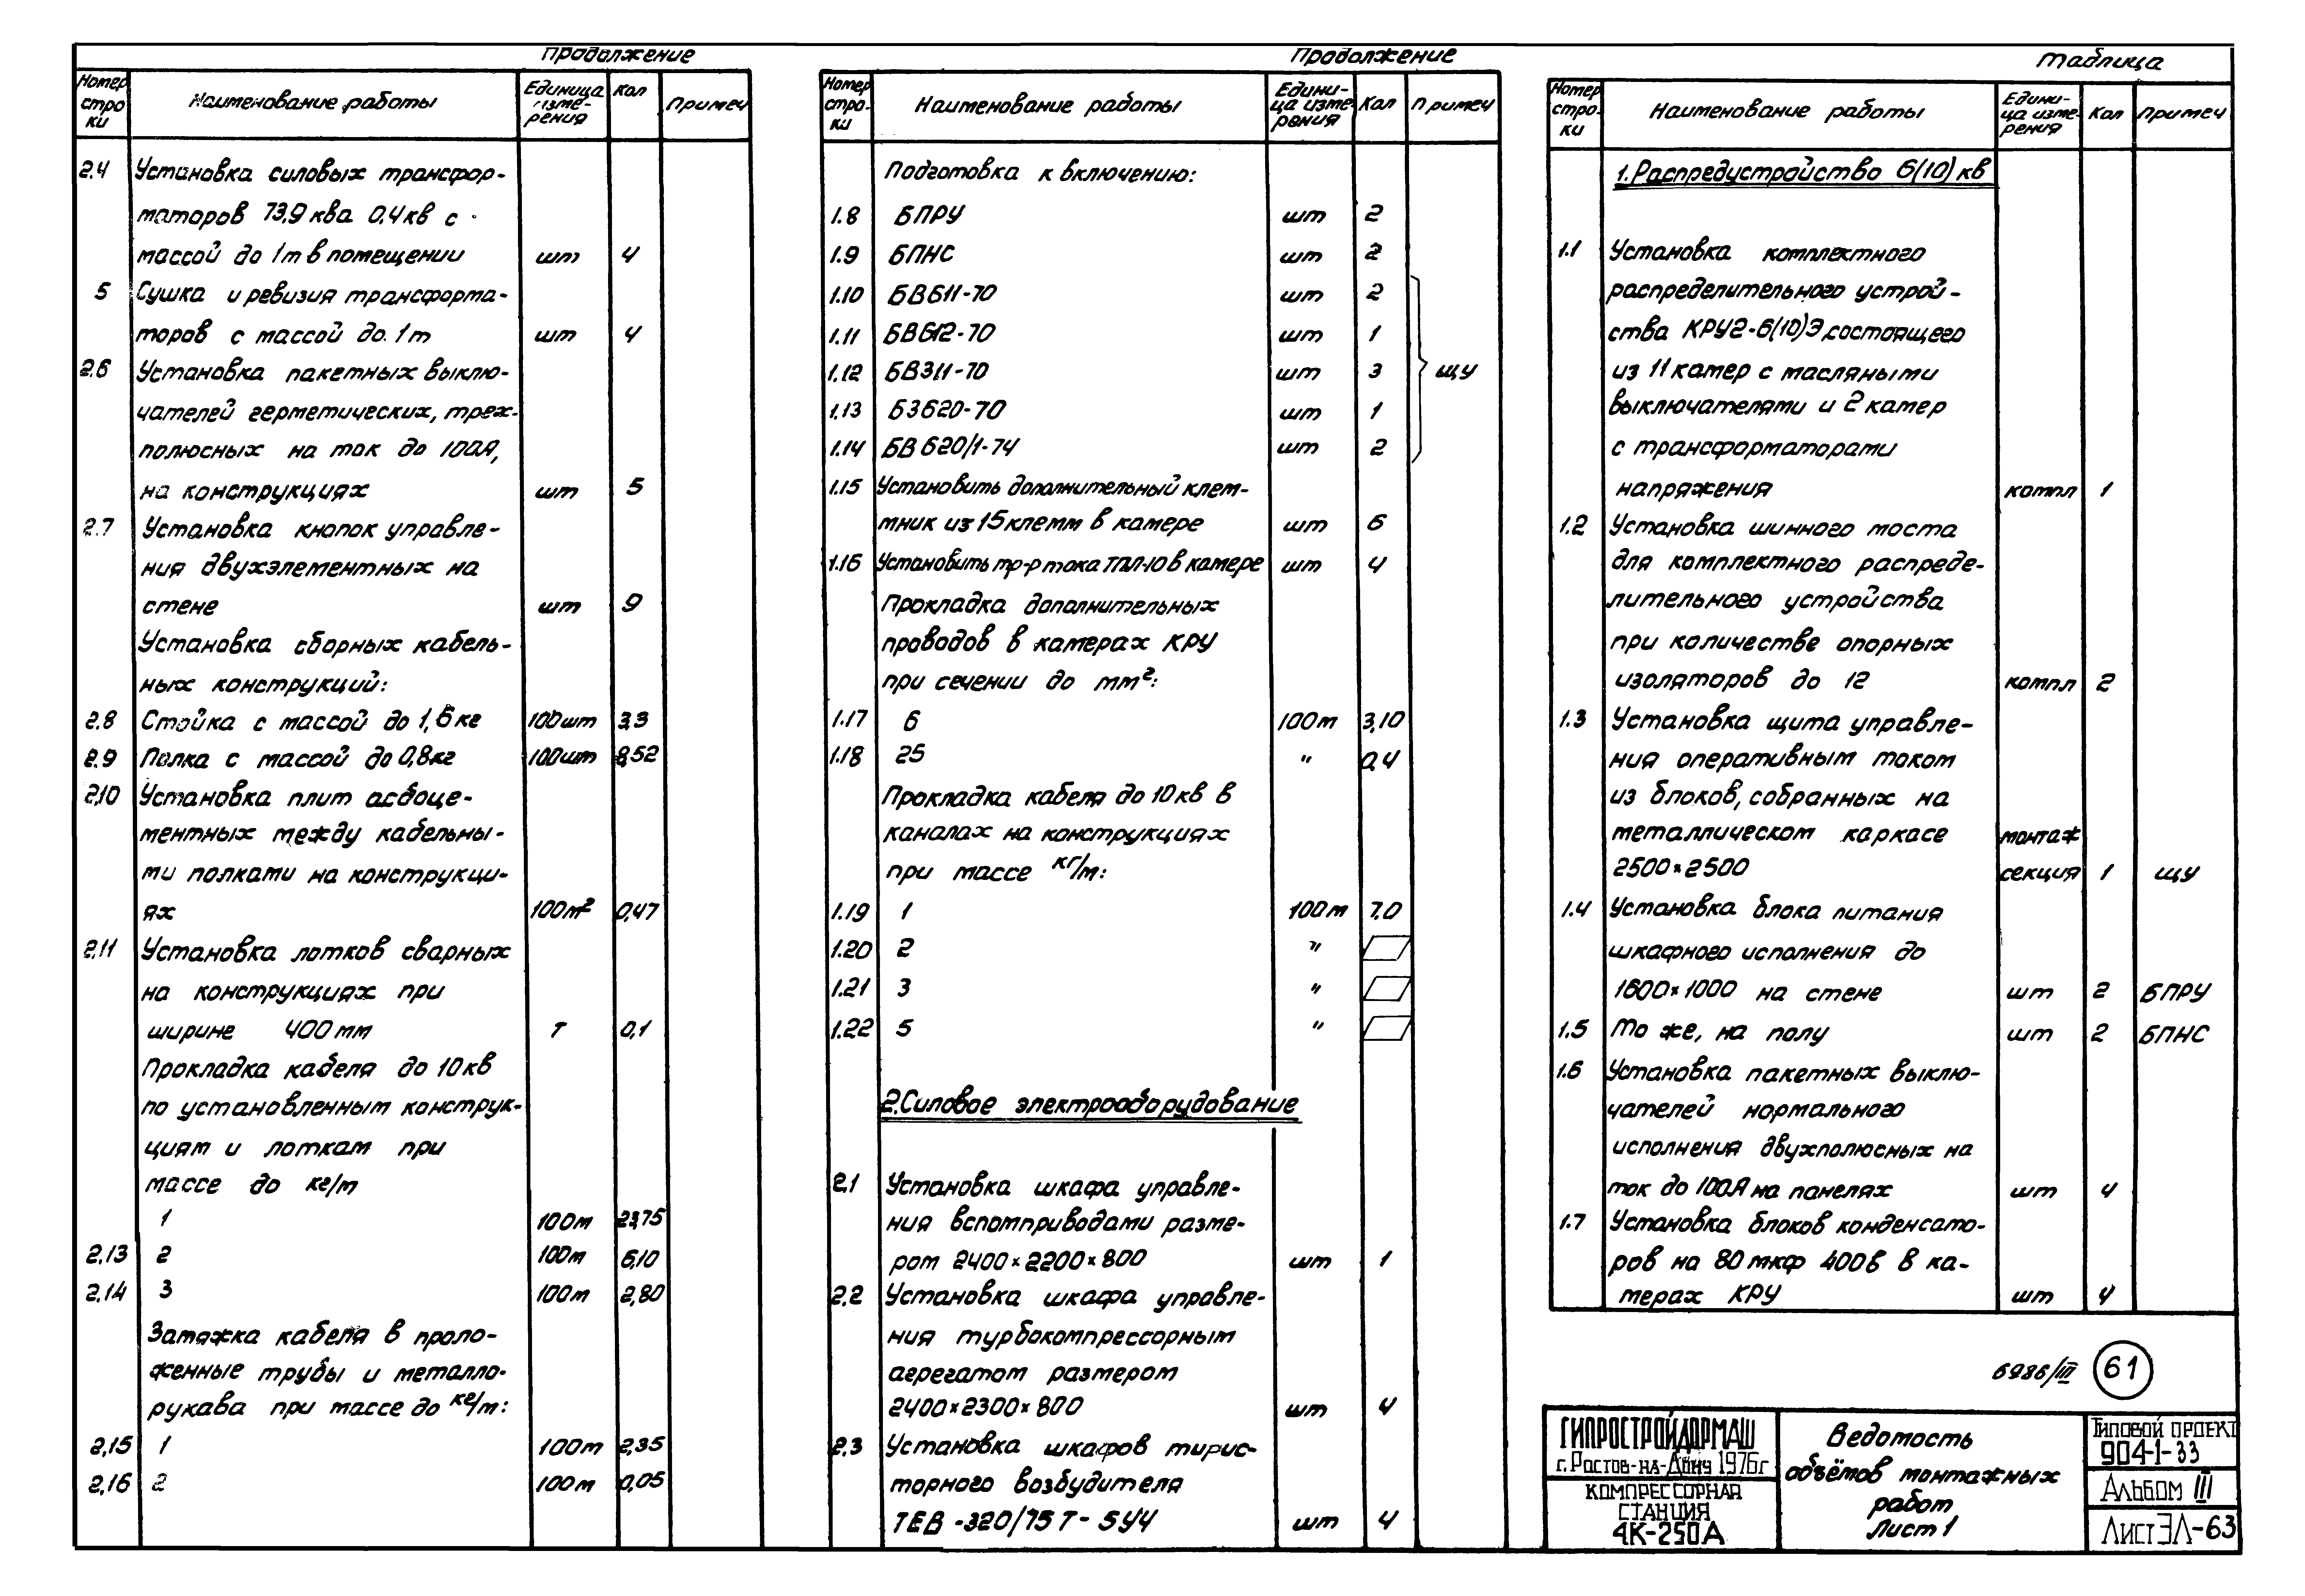 Продолжение
Номер стро ки | Наименование работы | Единица изме- рения | Кол | Примеч
2.4 Установка силовых трансфор-
маторов 73,9 ква 0,4 кв с
массой до 1т в помещении шт 4
5 Сушка и ревизия трансформа-
торов с массой до 1т шт 4
2.6 Установка пакетных выклю-
чателей герметических, трех-
полюсных на ток до 100А,
на конструкциях шт 5
2.7 Установка кнопок управле-
ния двухэлементных на
стене шт 9
Установка сборных кабель-
ных конструкций:
2.8 Стойка с массой до 1,6 кг 100шт 3,3
2.9 Полка с массой до 0,8кг 100шт 8,52
2.10 Установка плит асбоце-
ментных между кабельны-
ми полками на конструкци-
ях 100м² 0,47
2.11 Установка лотков сварных
на конструкциях при
ширине 400мм т 0,1
Прокладка кабеля до 10кв
по установленным конструк-
циям и лоткам при
массе до кг/м
1 100м 23,75
2.13 2 100м 6,10
2.14 3 100м 2,80
Затяжка кабеля в проло-
женные трубы и металло-
рукава при массе до кг/м:
2,15 1 100м 2,35
2,16 2 100м 0,05
Продолжение
Номер стро- ки | Наименование работы | Едини- ца изме рения | Кол | Примеч
Подготовка к включению:
1.8 БПРУ шт 2
1.9 БПНС шт 2
1.10 БВ611-70 шт 2
1.11 БВ612-70 шт 1
1.12 БВ311-70 шт 3 ЩУ
1.13 БЗ620-70 шт 1
1.14 БВ620/1-74 шт 2
1.15 Установить дополнительный клем-
мник из 15 клемм в камере шт 6
1.16 Установить тр-р тока ТПЛ-10 в камере шт 4
Прокладка дополнительных
проводов в камерах КРУ
при сечении до мм²:
1.17 6 100м 3,10
1.18 25 " 0,4
Прокладка кабеля до 10кв в
каналах на конструкциях
при массе кг/м:
1.19 1 100м 7.0
1.20 2 "
1.21 3 "
1.22 5 "
2.Силовое электрооборудование
2.1 Установка шкафа управле-
ния вспомприводами разме-
ром 2400×2200×800 шт 1
2.2 Установка шкафа управле-
ния турбокомпрессорным
агрегатом размером
2400×2300×800 шт 4
2.3 Установка шкафов тирис-
торного возбудителя
ТЕВ-320/75Т-5У4 шт 4
Таблица
Номер стро- ки | Наименование работы | Едини- ца изме- рения | Кол | Примеч
1.Распредустройство 6(10) кв
1.1 Установка комплектного
распределительного устрой-
ства КРУ2-6(10)Э, состоящего
из 11 камер с масляными
выключателями и 2 камер
с трансформаторами
напряжения компл 1
1.2 Установка шинного моста
для комплектного распреде-
лительного устройства
при количестве опорных
изоляторов до 12 компл 2
1.3 Установка щита управле-
ния оперативным током
из блоков, собранных на
металлическом каркасе монтаж
2500×2500 секция 1 ЩУ
1.4 Установка блока питания
шкафного исполнения до
1600×1000 на стене шт 2 БПРУ
1.5 То же, на полу шт 2 БПНС
1.6 Установка пакетных выклю-
чателей нормального
исполнения двухполюсных на
ток до 100А на панелях шт 4
1.7 Установка блоков конденсато-
ров на 80 мкф 400в в ка-
мерах КРУ шт 4
6986/III 61
ГИПРОСТРОЙДОРМАШ
г. Ростов-на-Дону 1976г
КОМПРЕССОРНАЯ
СТАНЦИЯ
4К-250А
Ведомость
объёмов монтажных
работ
Лист 1
Типовой проект
904-1-33
Альбом III
Лист ЭЛ-63